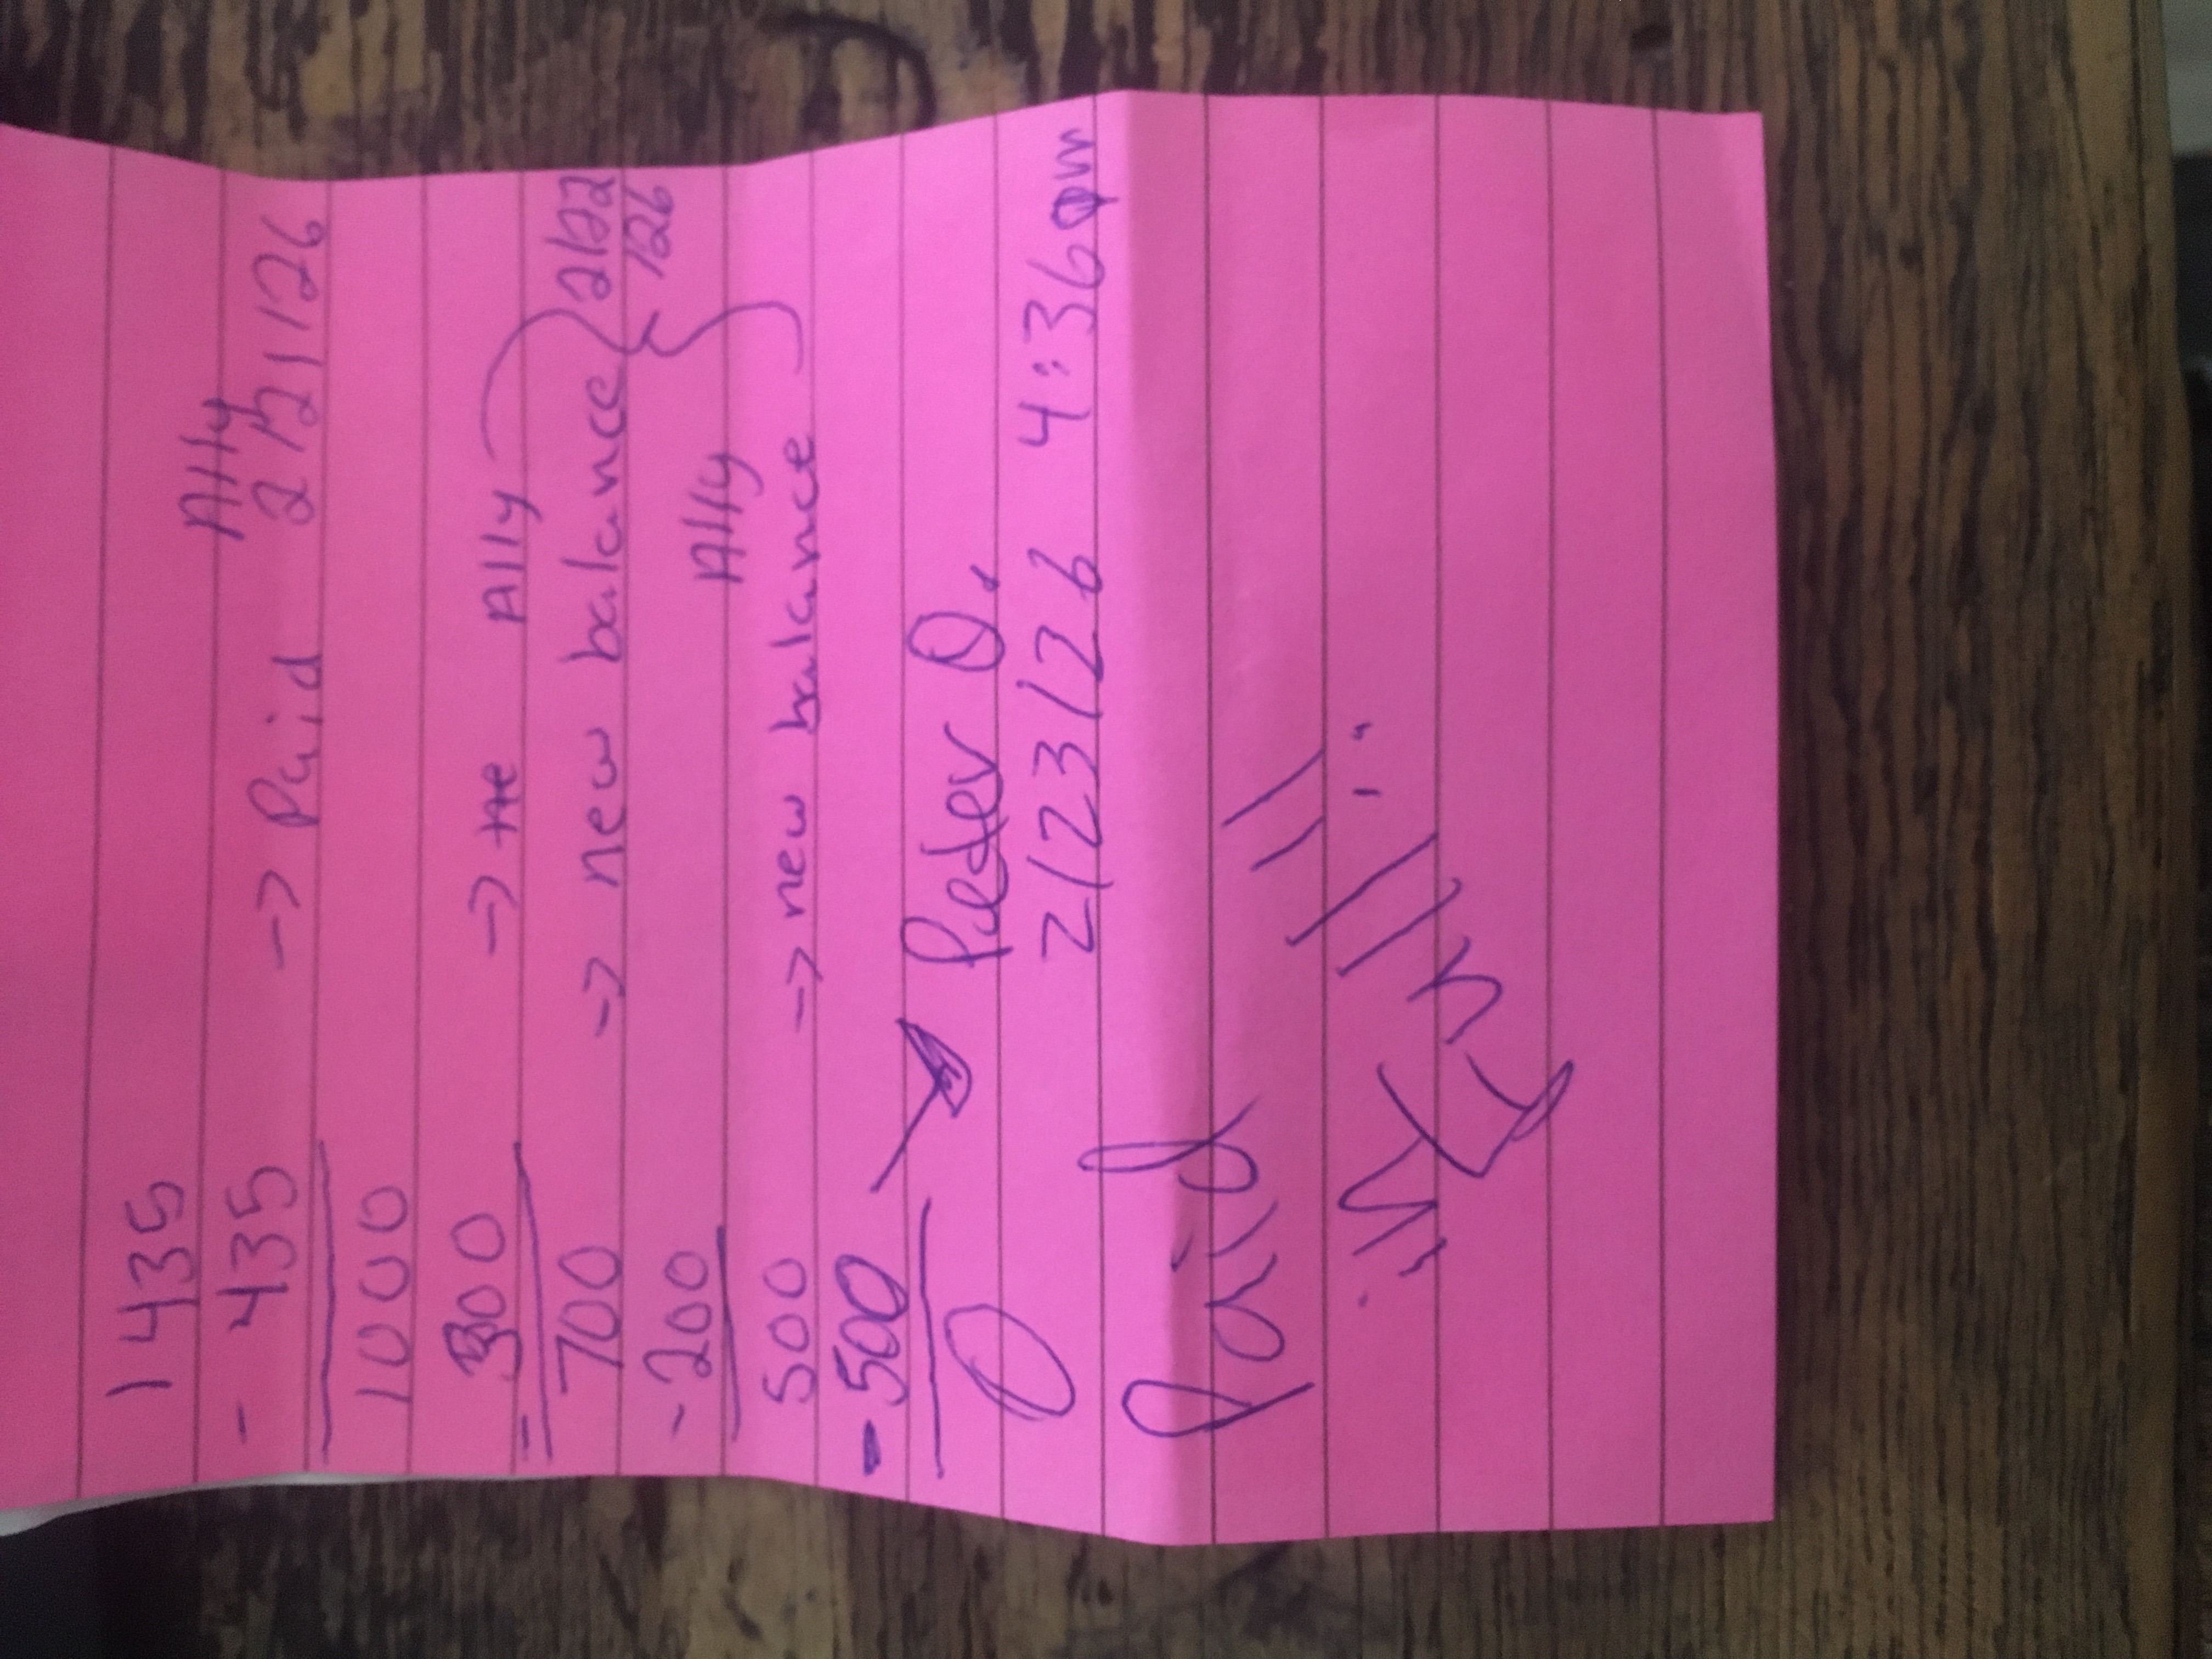 1435
Ally
- 435 -> Paid 2/21/26
1000
- 300 -> Ally
700 -> new balance 2/22
/26
- 200 Ally
500 -> new balance
- 500 Peter O.
0 2/23/26 4:36pm
Paid
in
Full!!